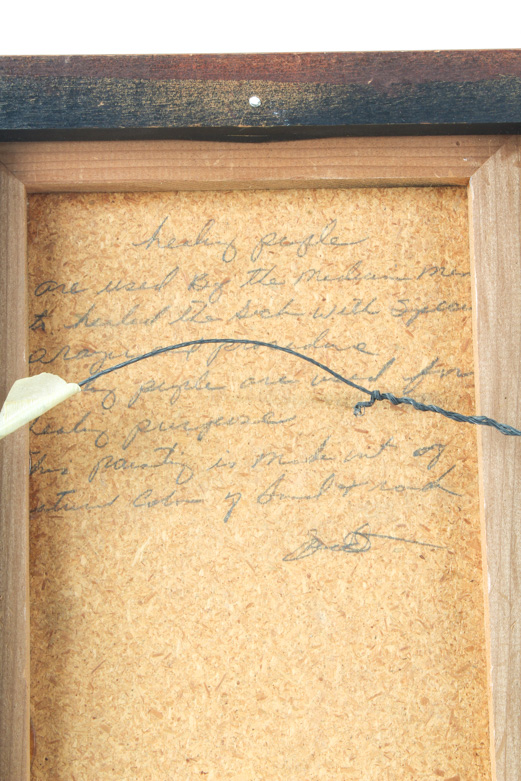 healing people
are used By the Medicine Men
to healed the Sick with Specia
prayer & procedure
people are used for
healing purpose
This painting is made out of
natural Colors of Sand & rock